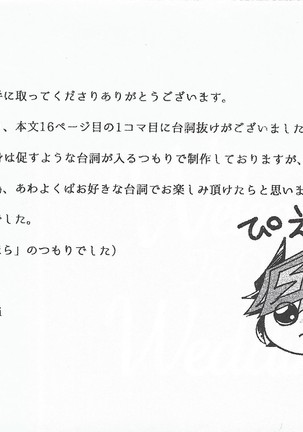 手に取ってくださりありがとうございます。
、本文16ページ目の1コマ目に台詞抜けがございました
身は促すような台詞が入るつもりで制作しておりますが、
、あわよくばお好きな台詞でお楽しみ頂けたらと思いま
でした。
ら」のつもりでした）
ぴえ
i